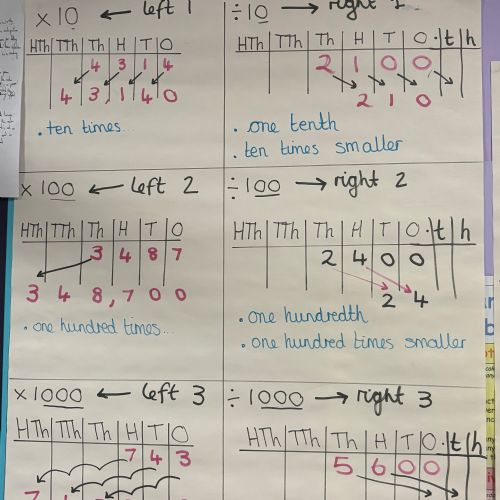 × 10 ← left 1
HTh TTh Th H T O
4 3 1 4
4 3, 1 4 0
• ten times...
÷ 10 → right 1
HTh TTh Th H T O • t h
2 1 0 0
2 1 0
• one tenth
• ten times smaller
× 100 ← left 2
HTh TTh Th H T O
3 4 8 7
3 4 8, 7 0 0
• one hundred times...
÷ 100 → right 2
HTh TTh Th H T O • t h
2 4 0 0
2 4
• one hundredth
• one hundred times smaller
× 1000 ← left 3
HTh TTh Th H T O
7 4 3
÷ 1000 → right 3
HTh TTh Th H T O • t h
5 6 0 0